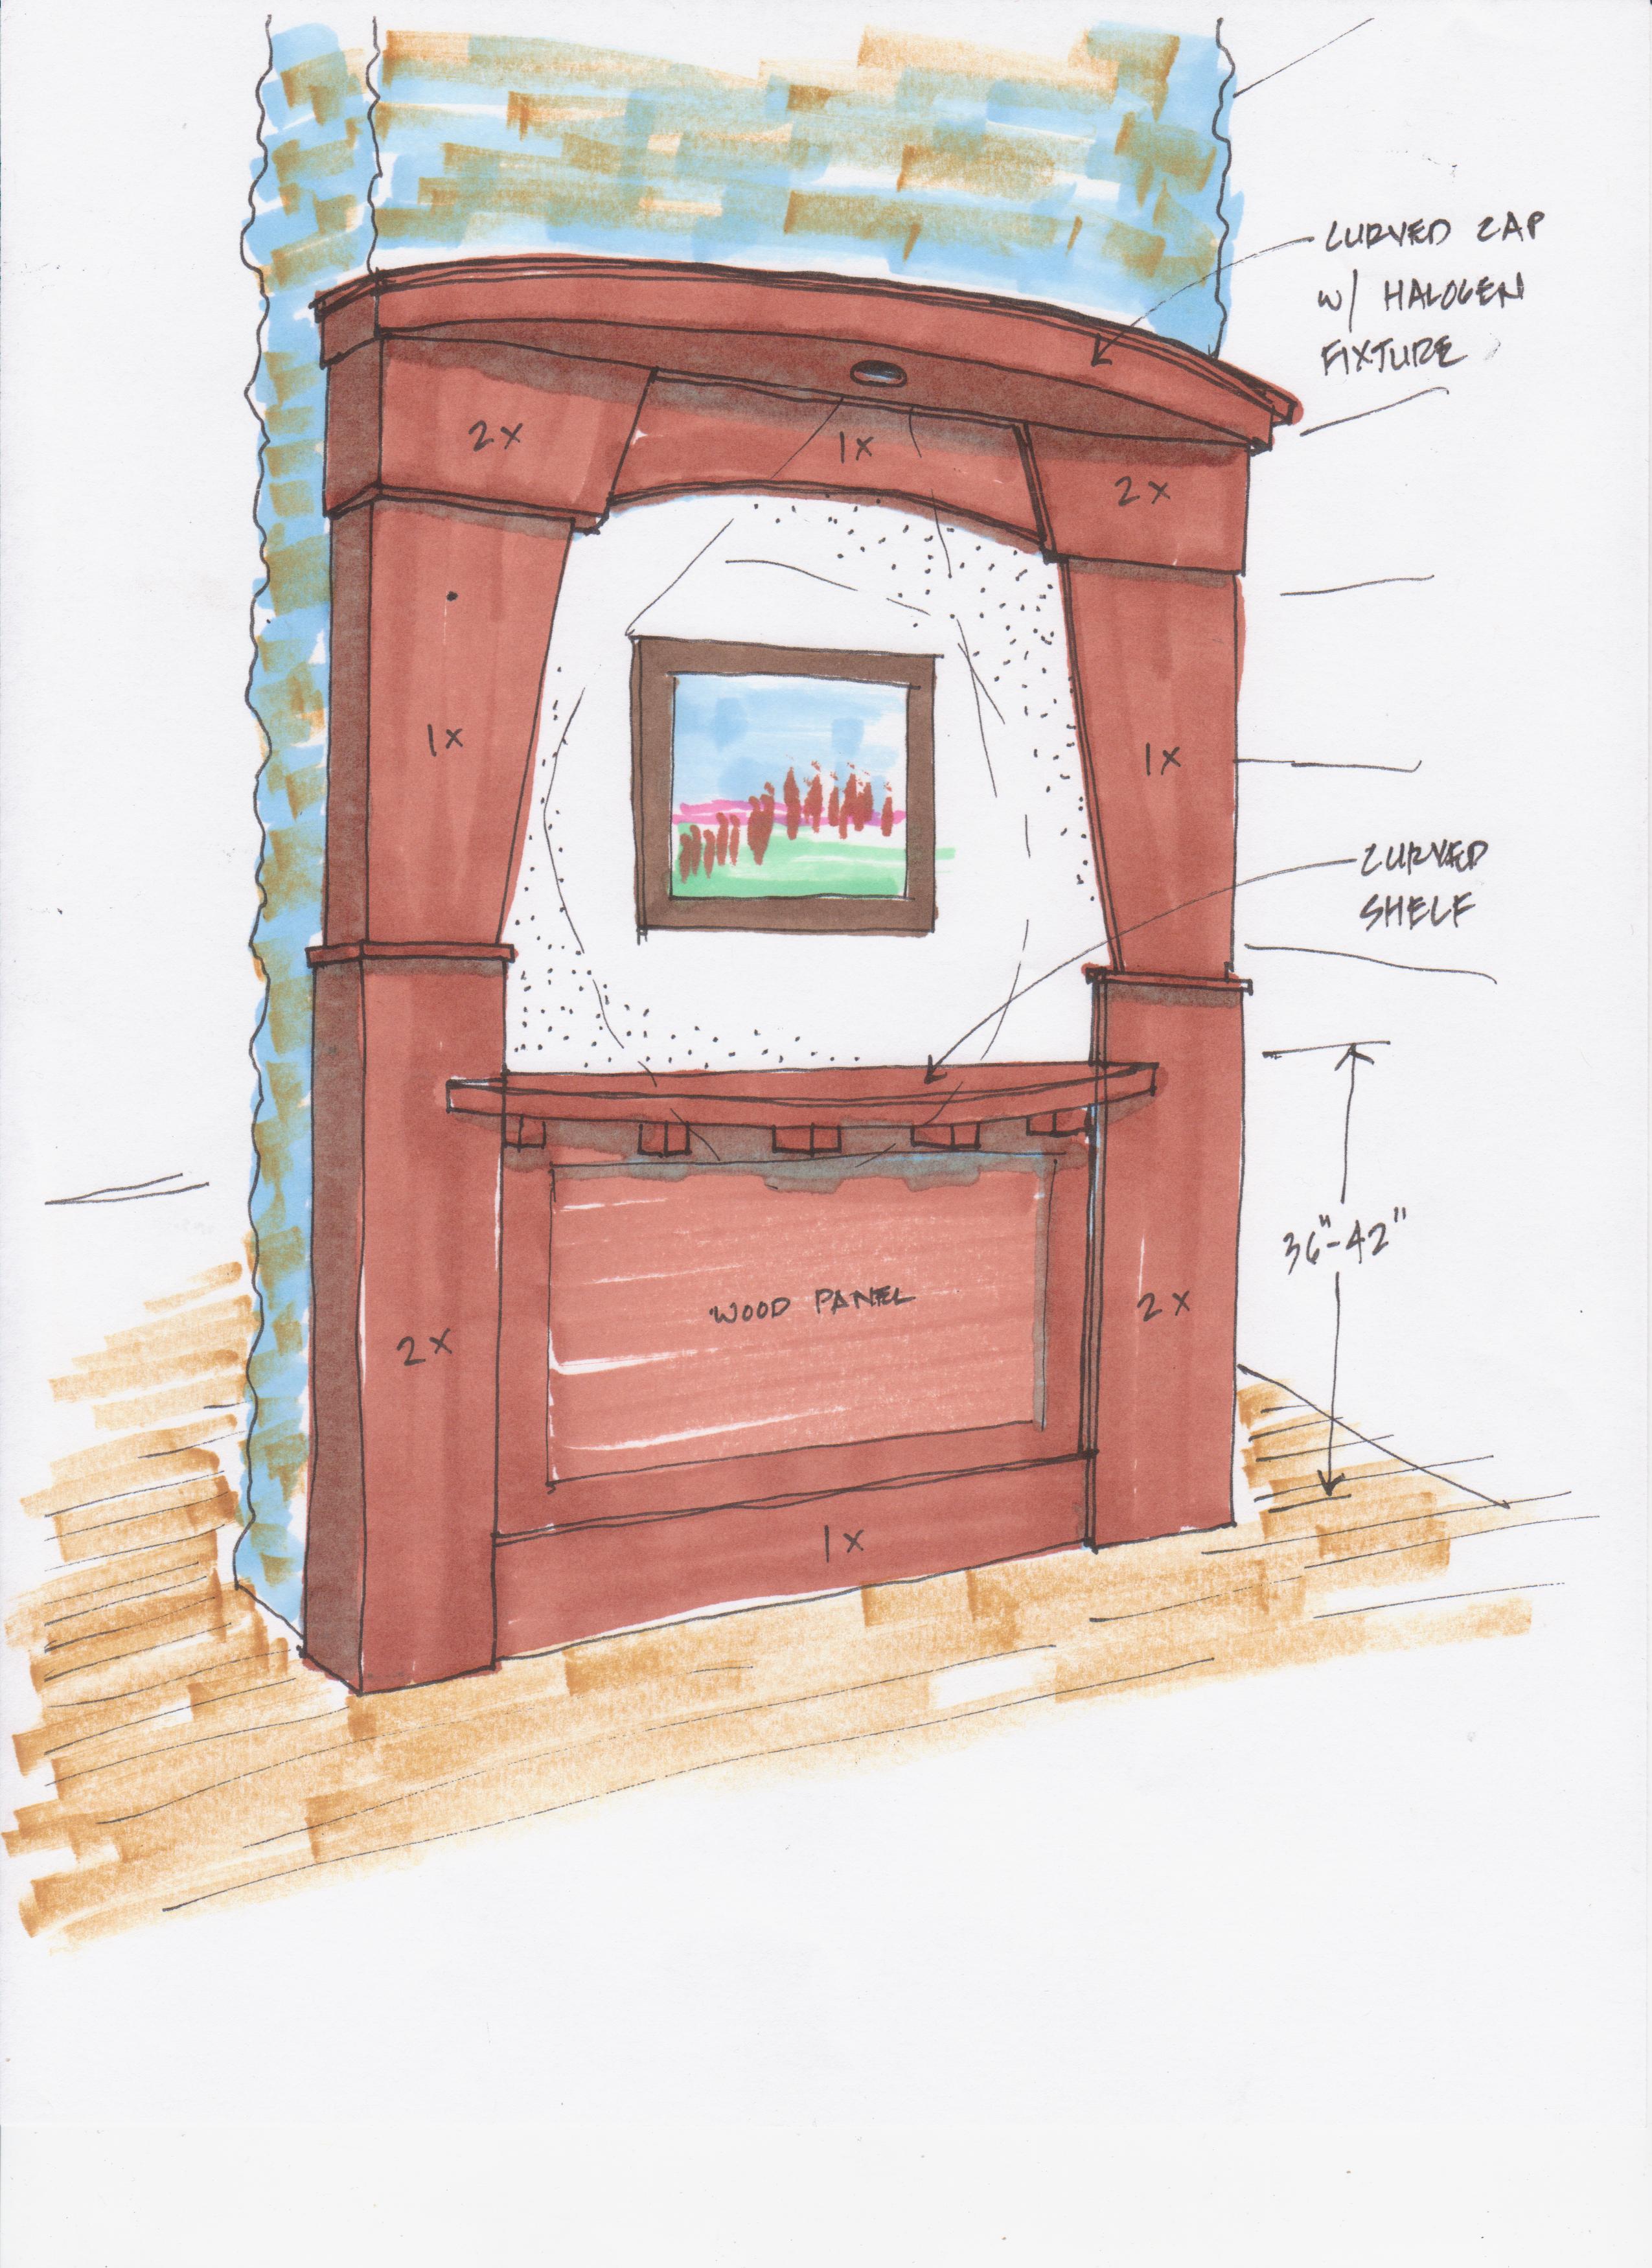 CURVED CAP
W/ HALOGEN
FIXTURE
2X
1X
2X
1X
1X
CURVED
SHELF
36"-42"
WOOD PANEL
2X
2X
1X